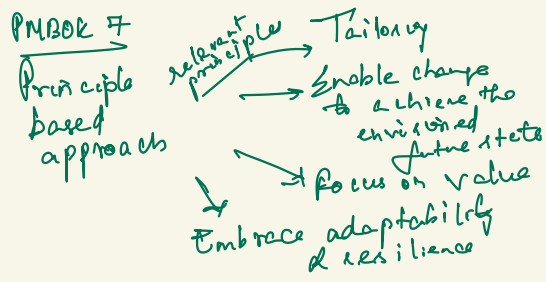 PMBOK 7
Principle
based
approach
relevant
principle
Tailoring
Enable change
to achieve the
envisioned
future state
Focus on value
Embrace adaptability
& resilience